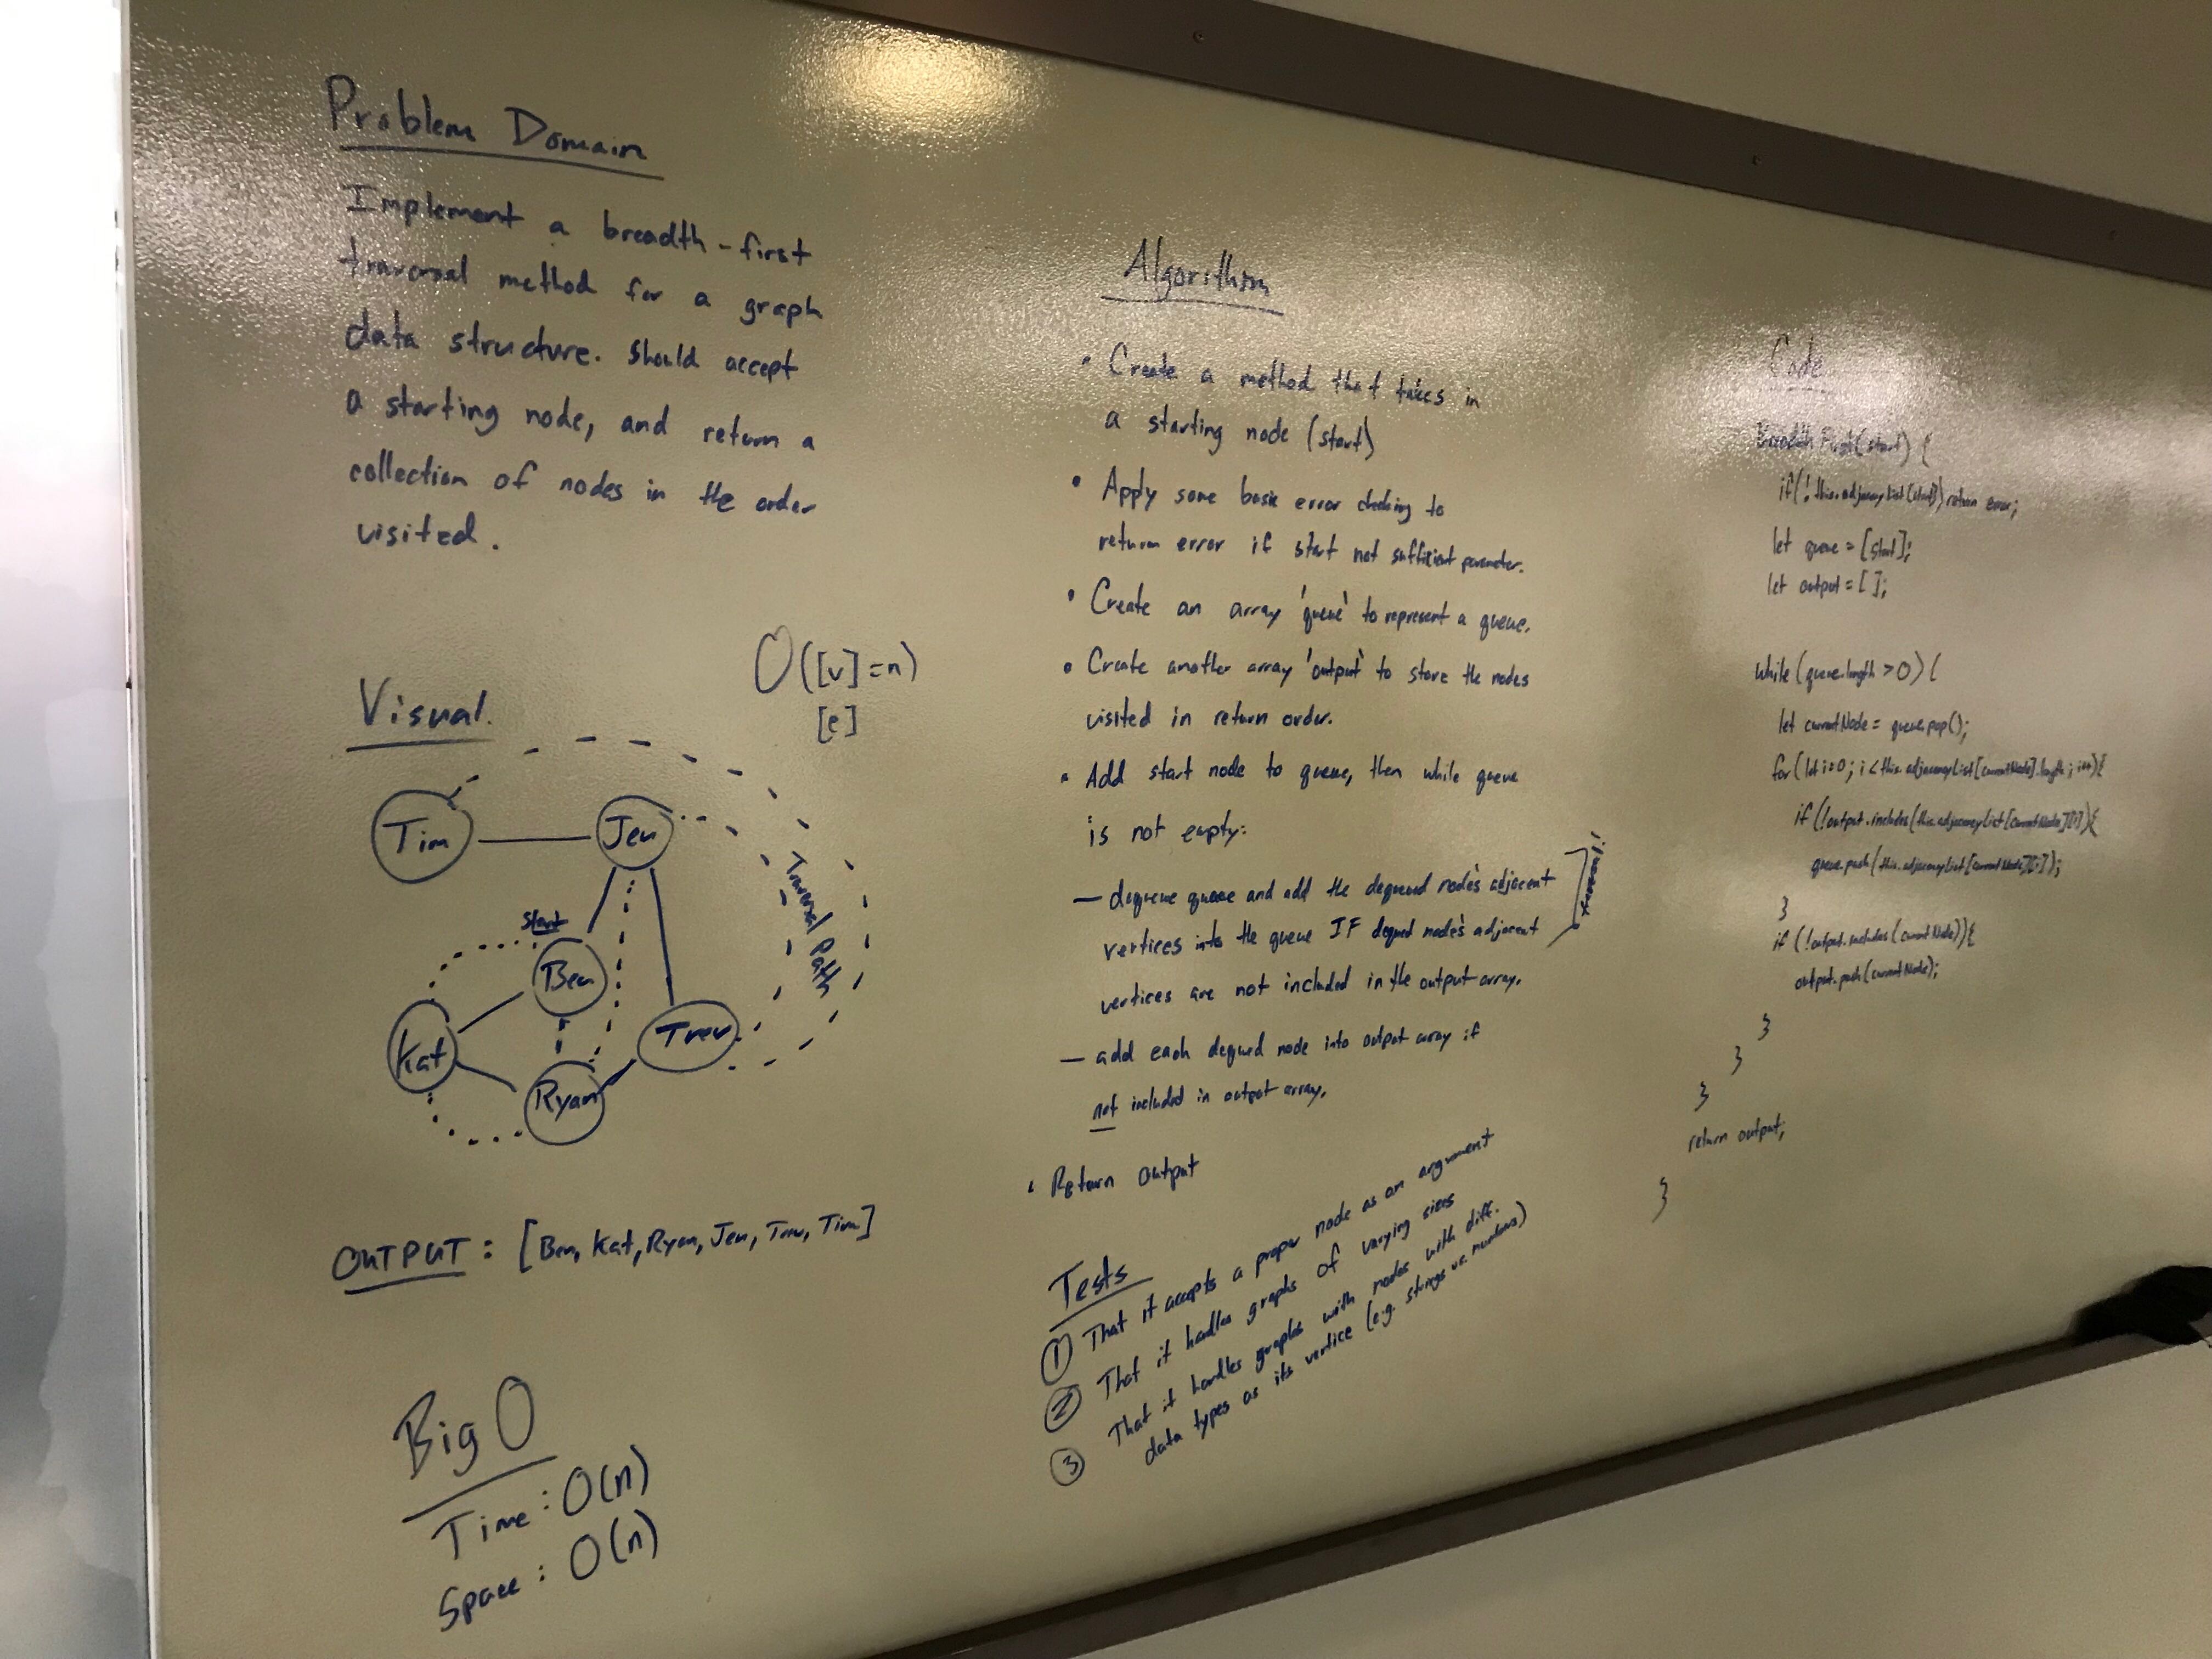 Problem Domain
Implement a breadth-first
traversal method for a graph
data structure. Should accept
a starting node, and return a
collection of nodes in the order
visited.
O([v]=n)
[e]
Visual.
Tim
Jen
start
Ben
Kat
Ryan
Trev
Traversal Path
OUTPUT: [Ben, Kat, Ryan, Jen, Trev, Tim]
Big O
Time: O(n)
Space: O(n)
Algorithm
• Create a method that takes in
a starting node (start)
• Apply some basic error checking to
return error if start not sufficient parameter.
• Create an array 'queue' to represent a queue.
• Create another array 'output' to store the nodes
visited in return order.
• Add start node to queue, then while queue
is not empty:
— dequeue queue and add the dequed node's adjacent
vertices into the queue IF dequed node's adjacent
vertices are not included in the output array.
— add each dequed node into output array if
not included in output array.
• Return Output
Tests
① That it accepts a proper node as an argument
② That it handles graphs of varying sizes
③ That it handles graphs with nodes with diff.
data types as its vertice (e.g. strings vs. numbers)
Code
BreadthFirst(start) {
if(!this.adjacencyList[start]) return error;
let queue = [start];
let output = [];
while (queue.length > 0) {
let currentNode = queue.pop();
for (let i=0; i < this.adjacencyList[currentNode].length; i++){
if (!output.includes(this.adjacencyList[currentNode][i]){
queue.push(this.adjacencyList[currentNode][i]);
}
if (!output.includes(currentNode)){
output.push(currentNode);
}
}
}
return output;
}